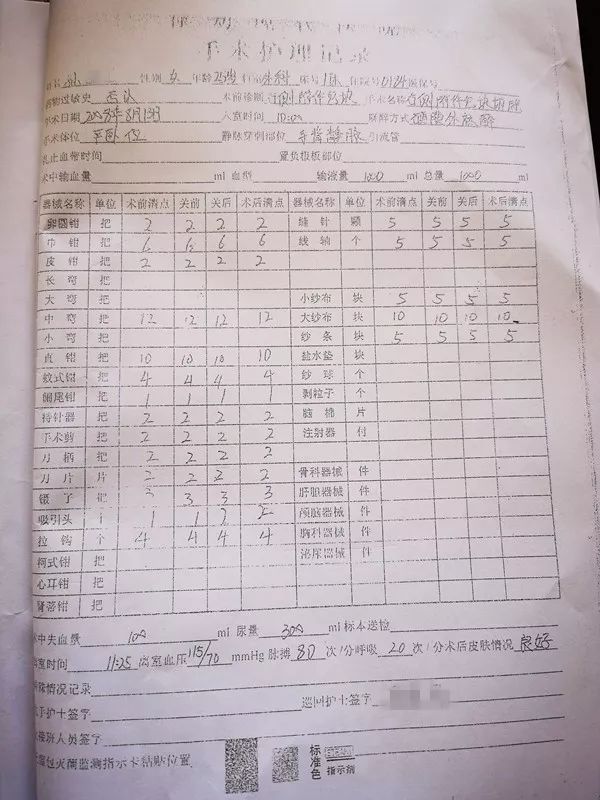 手术护理记录
性别 女 年龄 25岁 科别 外科 床号
药物过敏史 否认 术前诊断 右侧附件包块 手术名称 右侧附件包块切除
手术日期 8月19日 入室时间 10:00 麻醉方式
手术体位 平卧位 静脉穿刺部位 引流管
扎止血带时间 置负极板部位
术中输血量 ml 血型 输液量 1000 ml 总量 1000 ml
器械名称 单位 术前清点 关前 关后 术后清点 器械名称 单位 术前清点 关前 关后 术后清点
卵圆钳 把 2 2 2 2 缝针 颗 5 5 5 5
巾钳 把 6 6 6 6 线轴 个 5 5 5 5
皮钳 把 2 2 2 2
长弯 把
大弯 把 小纱布 块 5 5 5 5
中弯 把 12 12 12 12 大纱布 块 10 10 10 10
小弯 把 纱条 块 5 5 5 5
直钳 把 10 10 10 10 盐水垫 块
蚊式钳 把 4 4 4 4 纱球 个
阑尾钳 把 1 1 1 1 剥粒子 个
持针器 把 2 2 2 2 脑棉 片
手术剪 把 2 2 2 2 注射器 付
刀柄 把 2 2 2 2
刀片 片 2 2 2 2 骨科器械 件
镊子 把 3 3 3 3 肝胆器械 件
吸引头 个 1 1 2 2 颅脑器械 件
拉钩 个 4 4 4 4 胸科器械 件
柯式钳 把 泌尿器械 件
心耳钳 把
肾蒂钳 把
术中失血量 100 ml 尿量 300 ml 标本送检
离室时间 11:25 离室血压 115/70 mmHg 脉搏 80 次/分 呼吸 20 次/分 术后皮肤情况 良好
特殊情况记录
洗手护士签字 巡回护士签字
接班人员签字
包灭菌监测指示卡粘贴位置
标准色
指示剂